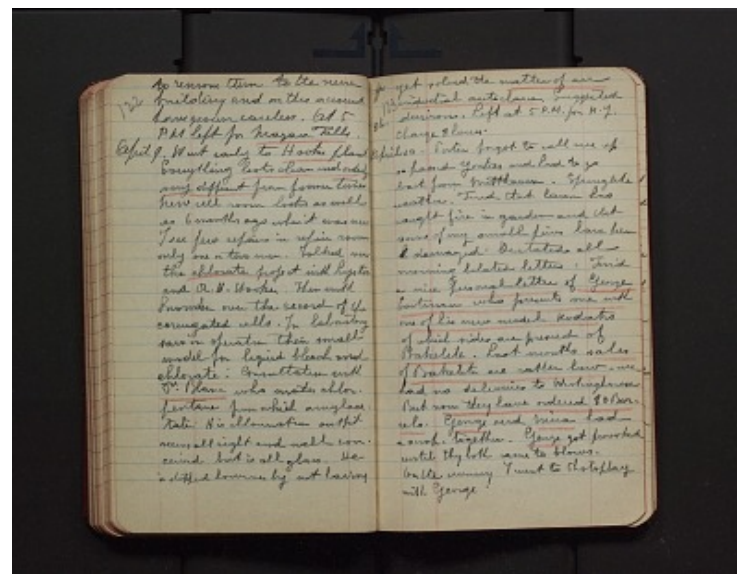 to remove them to the new
132
building and on this account
have grown careless. At 5
P.M. left for Niagara Falls.
April 9. Went early to Hooker plant
Everything looks clean and orderly
very different from former times
New cell room looks as well
as 6 months ago when it was new
I see few repairs in repair room
only one or two men. Talked over
the chlorate project with
and A. H. Hooker. Then with
over the record of
corrugated cells. In laboratory
saw in operation their small
model for liquid bleach and
chlorate. Consultation with
Dr. who makes chlor
pentane from which amylace
tate. His chlorination outfit
seems all right and well con
ceived but is all glass. He
is handicapped however by not having
yet solved the matter of an
133
industrial autoclave. Suggested
Left at 5 P.M. for N.Y.
April 10. Porter forgot to call me up
so passed Yonkers and had to go
back from. Springlike
weather. Find that lawn has
caught fire in garden and that
some of my small pines have been
damaged. Dictated all
morning belated letters. Find
a nice personal letter of George
Eastman who presents me with
one of his new model Kodaks
of which sides are pressed of
Bakelite. Last months sales
of Bakelite are rather low. we
had no deliveries to Westinghouse
But now they have ordered 40 Bar-
rels. George and Nina had
a scrap together. George got provoked
until they both came to blows.
In the evening I went to Photoplay
with George